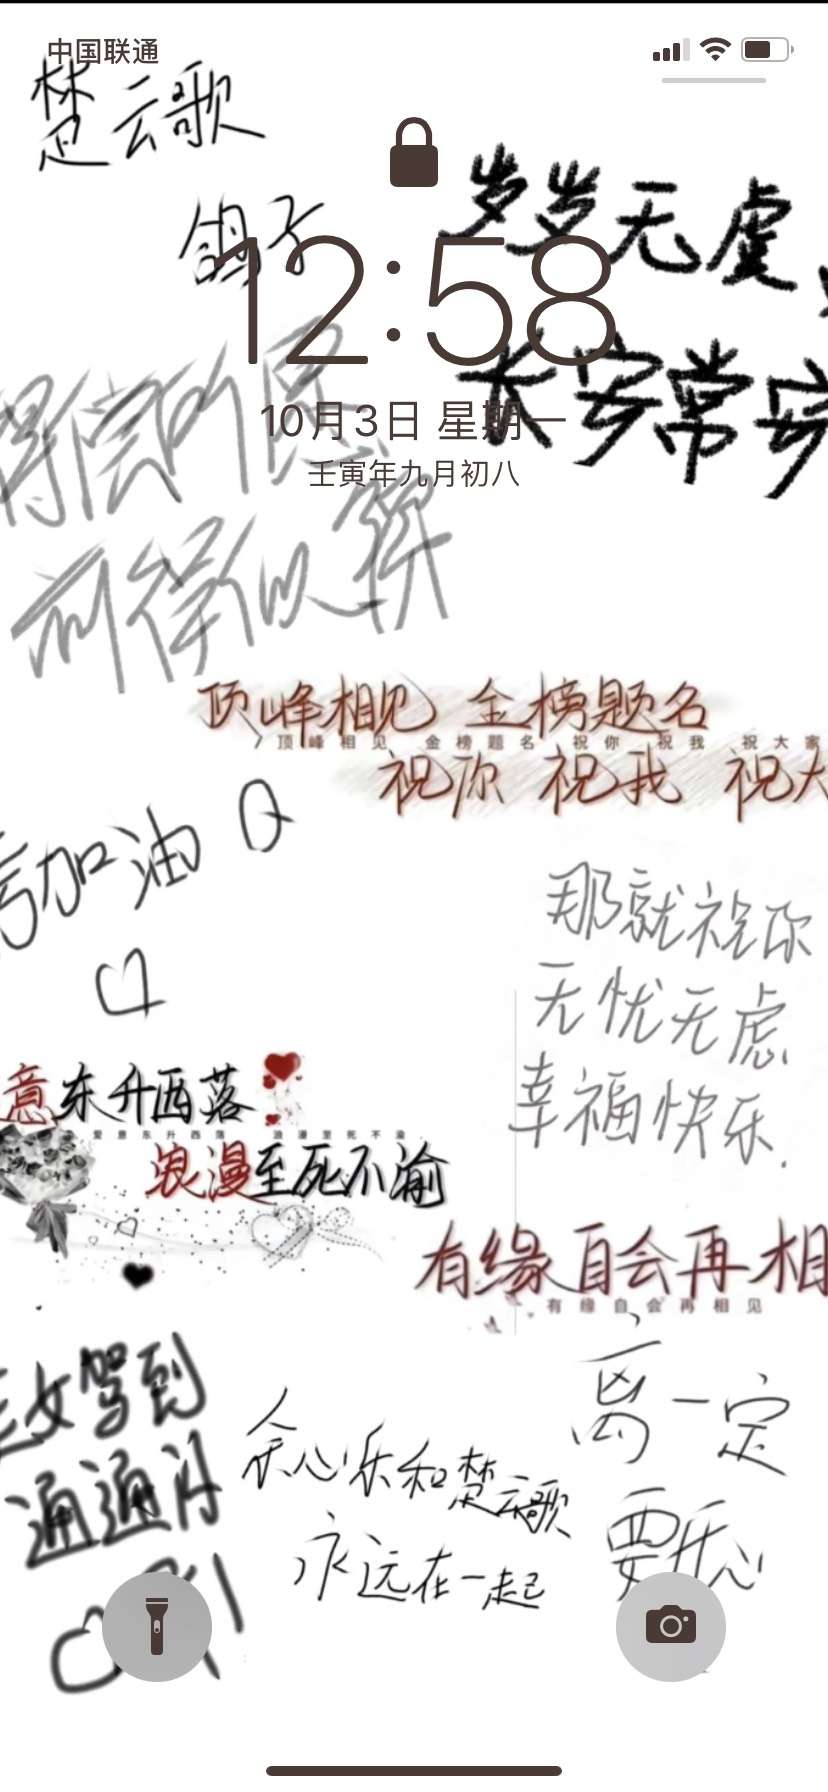 中国联通
楚云歌
鸽子
岁岁无虞
长安常安
12:58
10月3日 星期一
壬寅年九月初八
得偿所愿
前程似锦
顶峰相见 金榜题名
顶峰相见 金榜题名 祝你 祝我 祝大家
祝你 祝我 祝大
考加油
那就祝你
无忧无虑
幸福快乐.
意东升西落
爱意东升西落 浪漫至死不渝
浪漫至死不渝
有缘自会再相
有缘自会再相见
女驾到
通通闪
余心乐和楚云歌
永远在一起
离一定
要开心